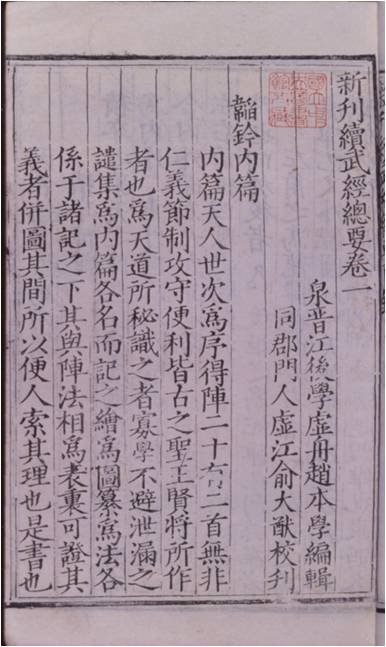 新刊續武經總要卷一
泉晉江後學虛舟趙本學編輯
同郡門人虛江俞大猷校刊
韜鈐内篇
内篇天人世次爲序得陣二十有二首無非
仁義節制攻守便利皆古之聖王賢將所作
者也爲天道所秘識之者寡學不避泄漏之
譴集爲内篇各名而記之繪爲圖纂爲法各
係于諸記之下其與陣法相爲表裏可證其
義者併圖其間所以便人索其理也是書也